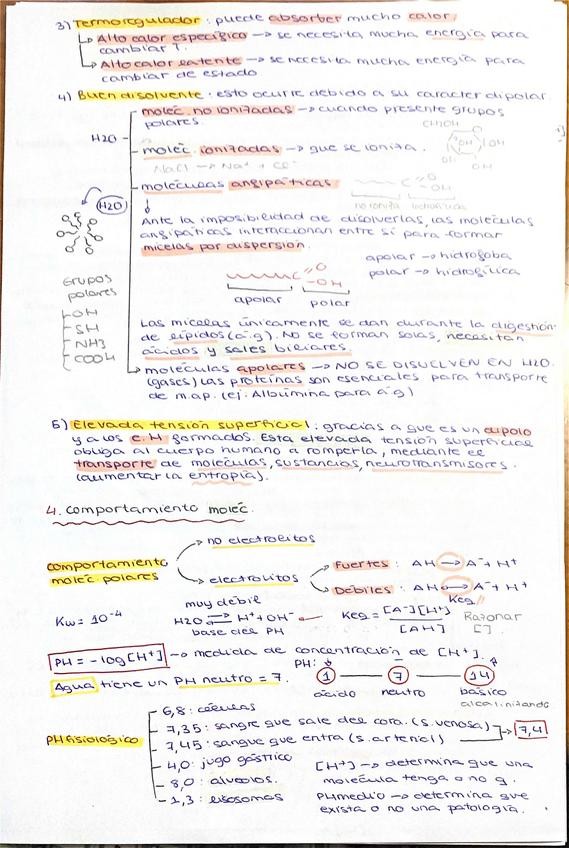 3) Termorregulador: puede absorber mucho calor.
Alto calor específico → se necesita mucha energía para
cambiar T.
Alto calor latente → se necesita mucha energía para
cambiar de estado
4) Buen disolvente: esto ocurre debido a su caracter dipolar.
molec. no ionizadas → cuando presente grupos
polares.
CH2OH
OH
OH
OH
H2O
molec. ionizadas → que se ioniza.
NaCl → Na+ + Cl-
moléculas angipáticas
C
O
OH
no ioniza
H2O
Ante la imposibilidad de disolverlas, las moléculas
angipáticas interaccionan entre sí para formar
micelas por dispersión.
apolar → hidrófoba
polar → hidrofílica
C
O
-OH
apolar
polar
Grupos
polares
-OH
-SH
-NH3
COOH
Las micelas únicamente se dan durante la digestión
de lípidos (a.g). No se forman solas, necesitan
ácidos y sales biliares.
moléculas apolares → NO SE DISUELVEN EN H2O.
(gases) Las proteínas son esenciales para transporte
de m.ap. (ej. Albúmina para a.g)
5) Elevada tensión superficial: gracias a que es un dipolo
y a los e.H formados. Esta elevada tensión superficial
obliga al cuerpo humano a romperla, mediante el
transporte de moléculas, sustancias, neurotransmisores.
(aumentar la entropía).
4. comportamiento molec.
comportamiento
molec polares
no electrolitos
electrolitos
Fuertes: AH → A- + H+
Débiles: AH ↔ A- + H+
Keq
Kw = 10-4
muy débil
H2O ⇌ H+ + OH-
base del PH
Keq = [A-][H+]
[AH]
Razonar
[ ].
PH = -log[H+] → medida de concentración de [H+].
Agua tiene un PH neutro = 7.
PH:
1 — 7 — 14
ácido neutro básico
alcalinizando
PH fisiológico
6,8: células
7,35: sangre que sale del cora. (s. venosa)
7,45: sangue que entra (s. arterial)
7,4
4,0: jugo gástrico
8,0: alveolos.
1,3: lisosomas
[H+] → determina que una
molécula tenga o no g.
PH medio → determina que
exista o no una patología.